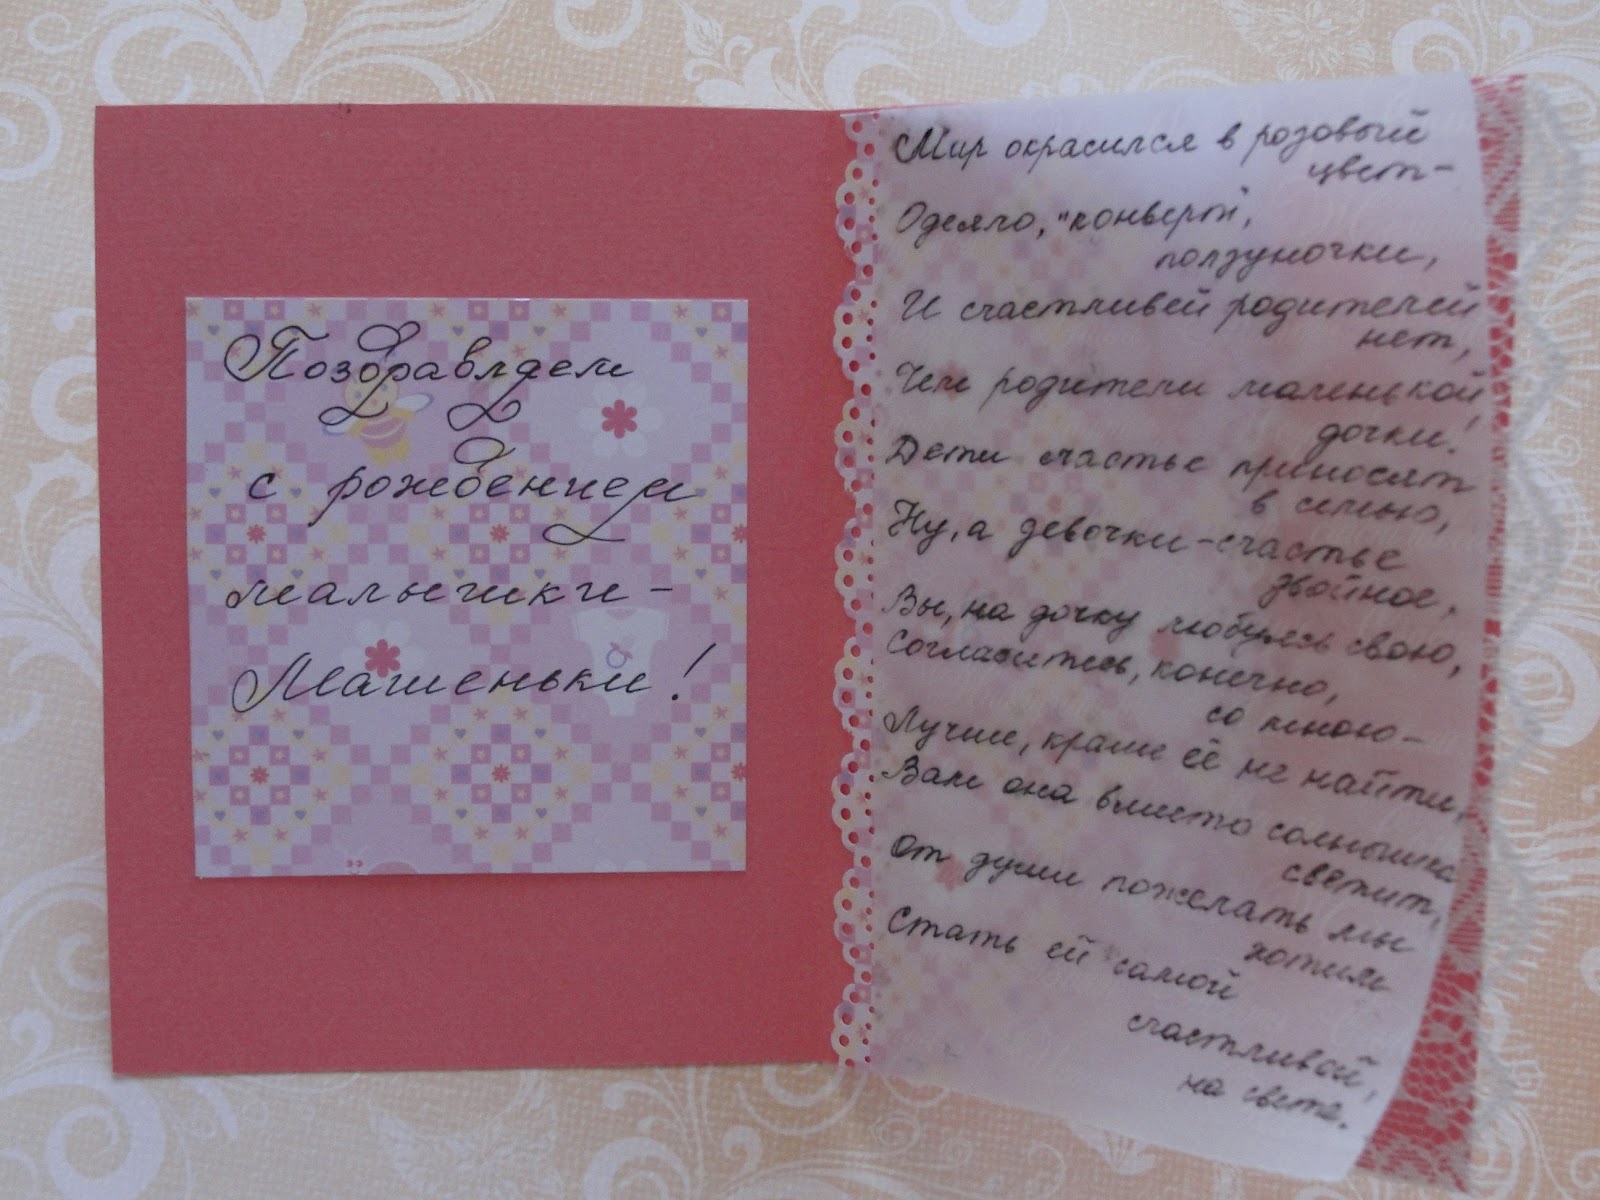 Поздравляем
с рождением
малышки -
Машеньки!
Мир окрасился в розовый
цвет -
Одеяло, "конверт",
ползуночки,
И счастливей родителей
нет,
Чем родители маленькой
дочки!
Дети счастье приносят
в семью,
Ну, а девочки - счастье
двойное,
Вы, на дочку любуясь свою,
Согласитесь, конечно,
со мною -
Лучше, краше её не найти,
Вам она вместо солнышка
светит,
От души пожелать мы
хотим
Стать ей самой
счастливой,
на свете.